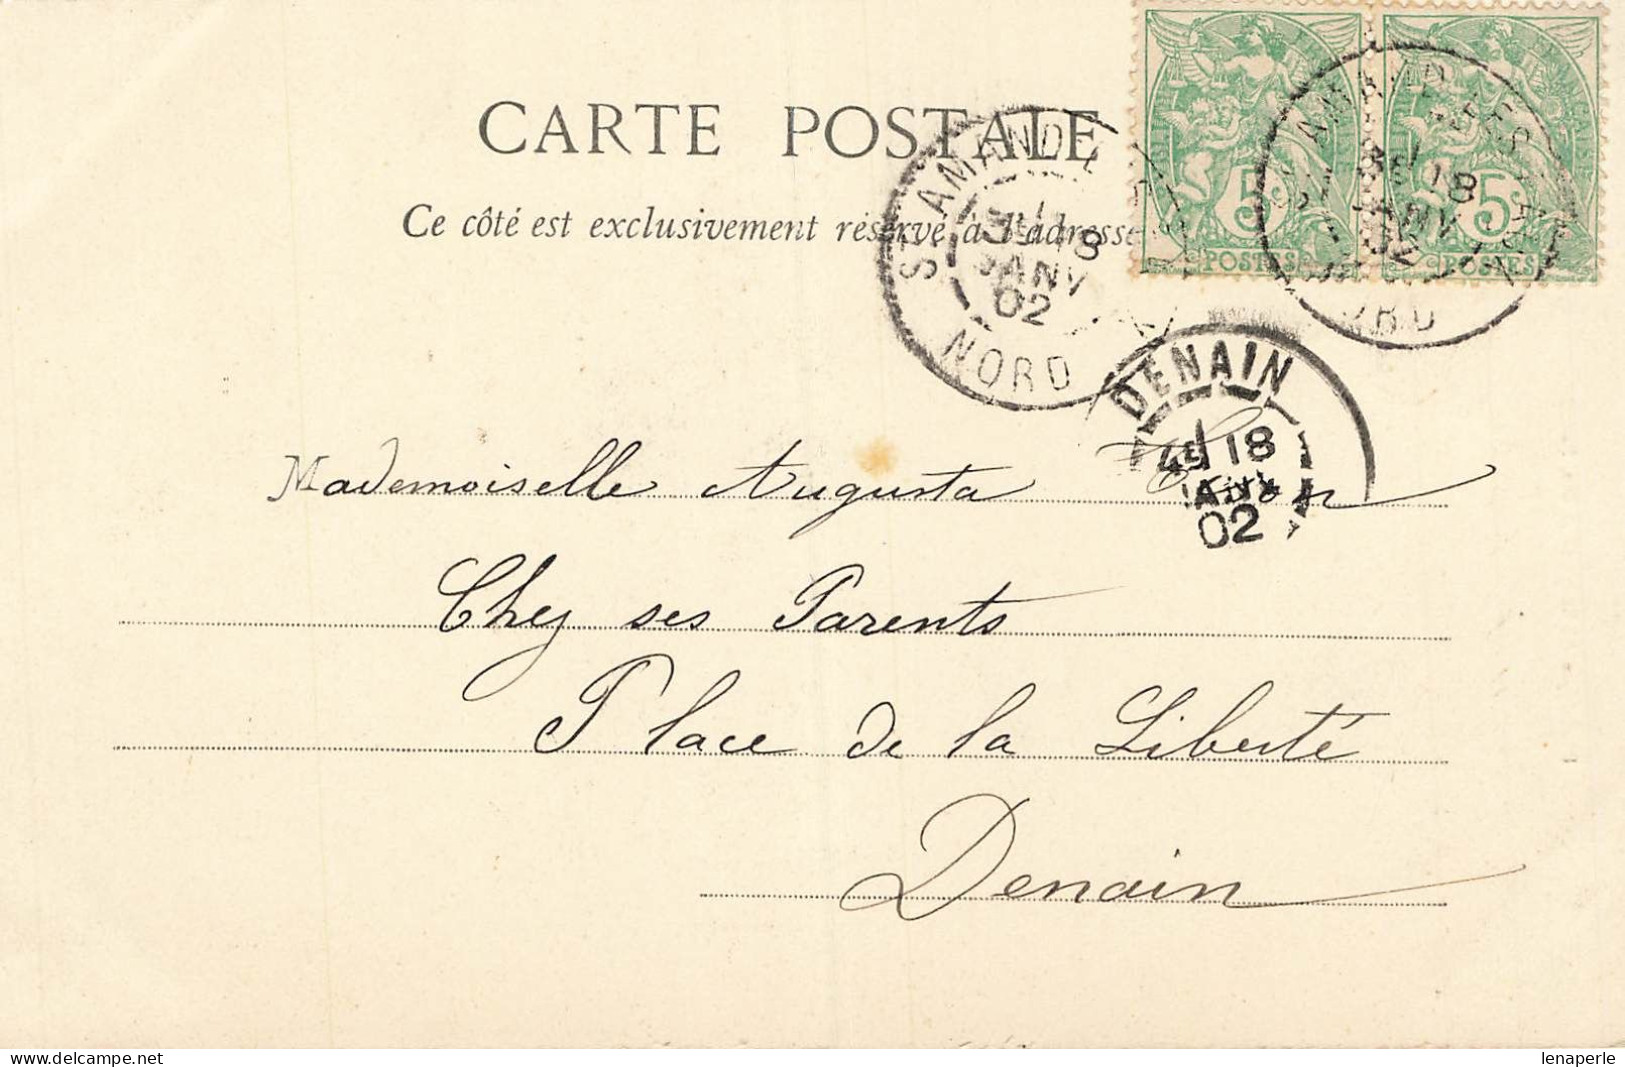 CARTE POSTALE
Ce côté est exclusivement réservé à l'adresse
5c 5c
POSTES POSTES
ST AMAND
18
JANV
02
NORD
18
JANV
02
DENAIN
4E 18
JANV
02
Mademoiselle Augusta
Chez ses Parents
Place de la Liberté
Denain
delcampe.net
lenaperle